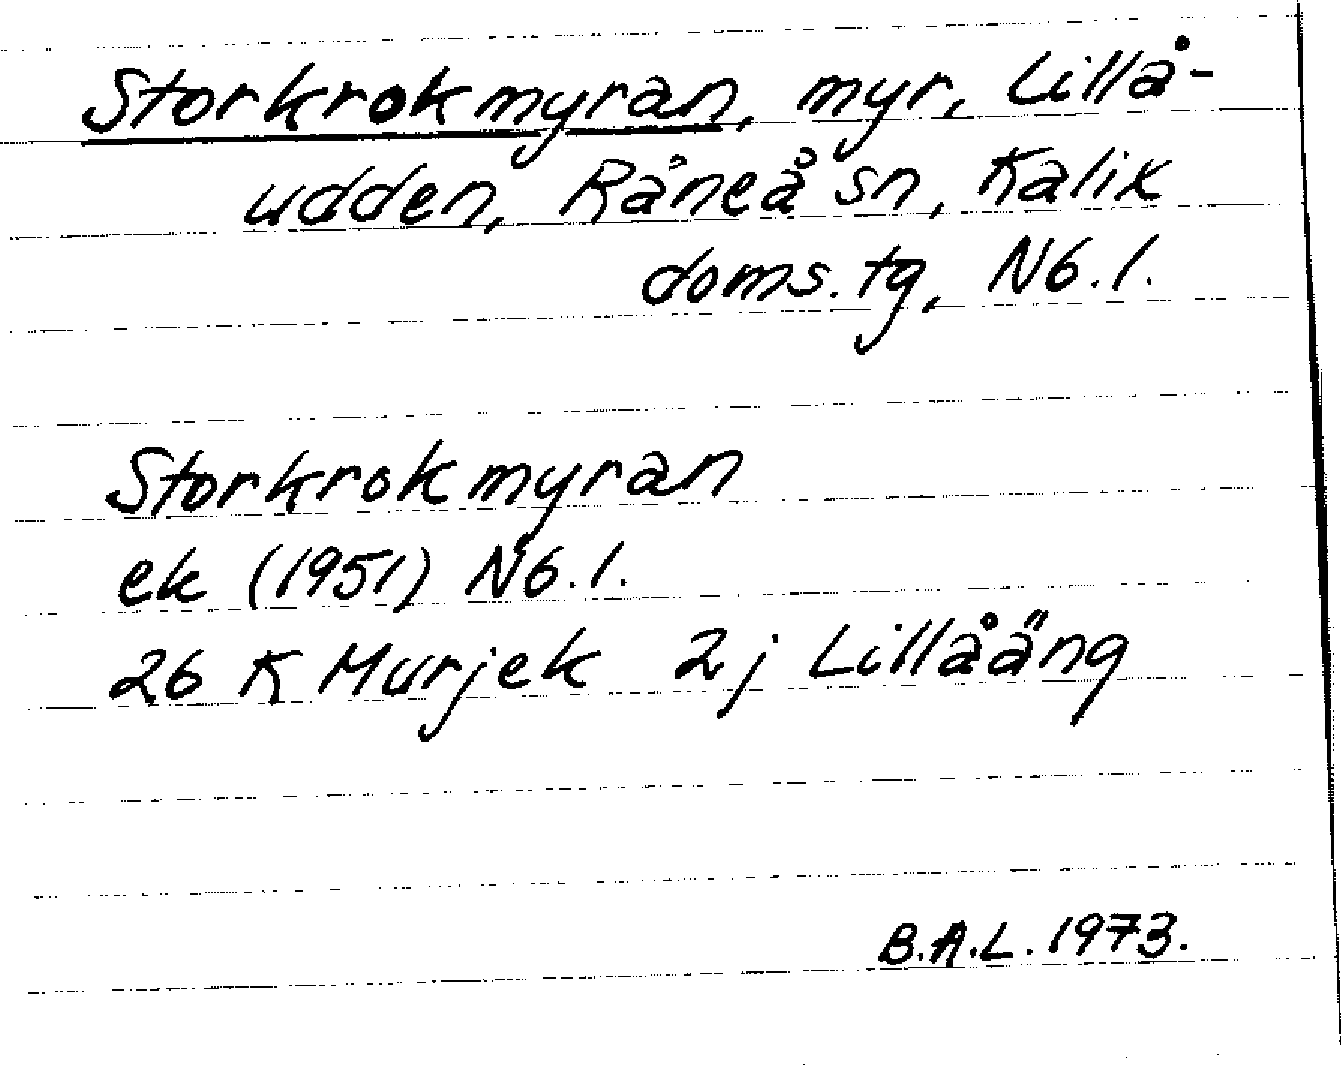 Storkrokmyran, myr, Lillå-
udden, Råneå sn, Kalix
doms.tg, Nb.l.
Storkrokmyran
ek (1951) Nb.l.
26 K Murjek 2j Lillåäng
B.A.L. 1973.